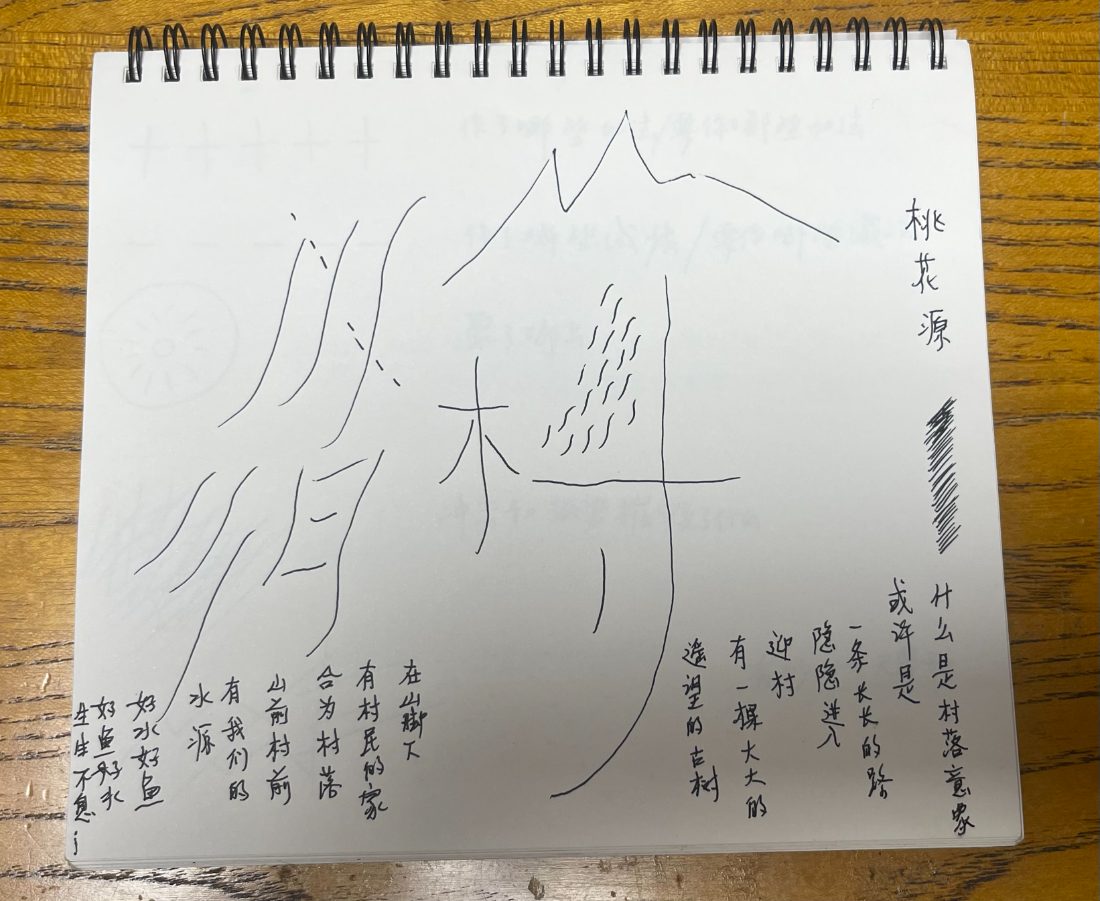 桃花源
什么是村落意象
或许是
一条长长的路
隐隐进入
迎村
有一棵大大的
遥望的古树
在山脚下
有村民的家
合为村落
山前村前
有我们的
水源
好水好鱼
好鱼好水
生生不息
村